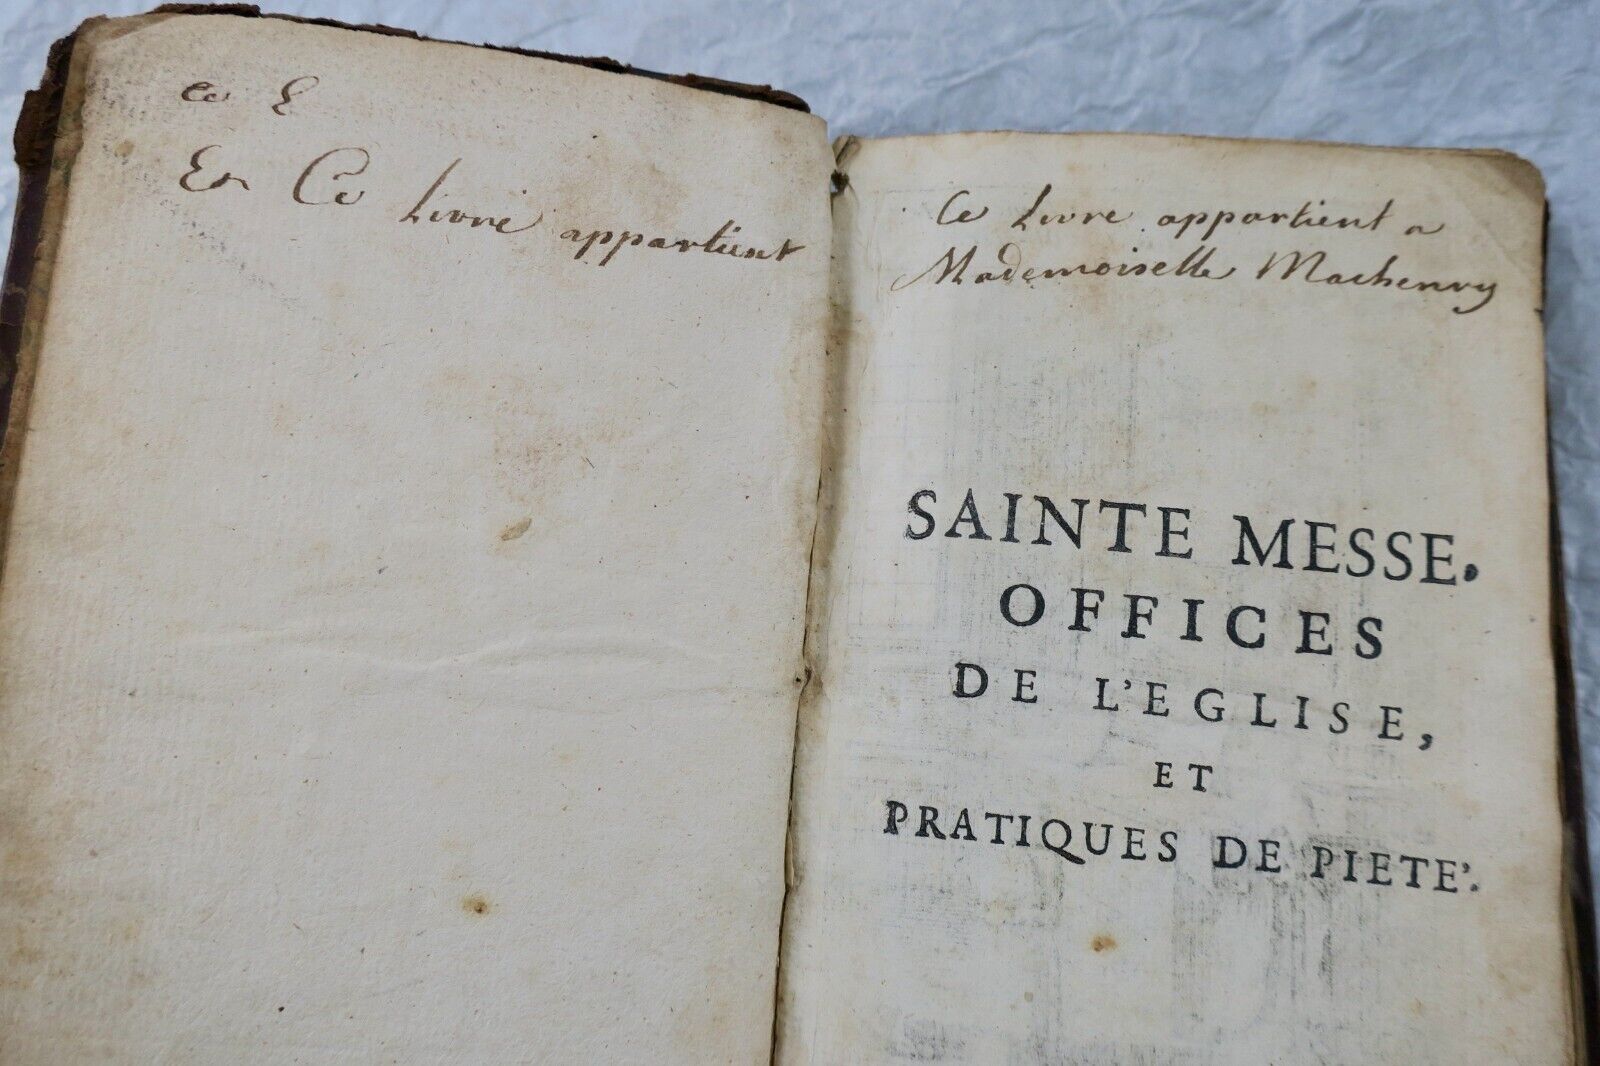 ce E
En Ce Livre appartient
Ce Livre appartient a
Mademoiselle Machenry
SAINTE MESSE.
OFFICES
DE L'EGLISE,
ET
PRATIQUES DE PIETE'.